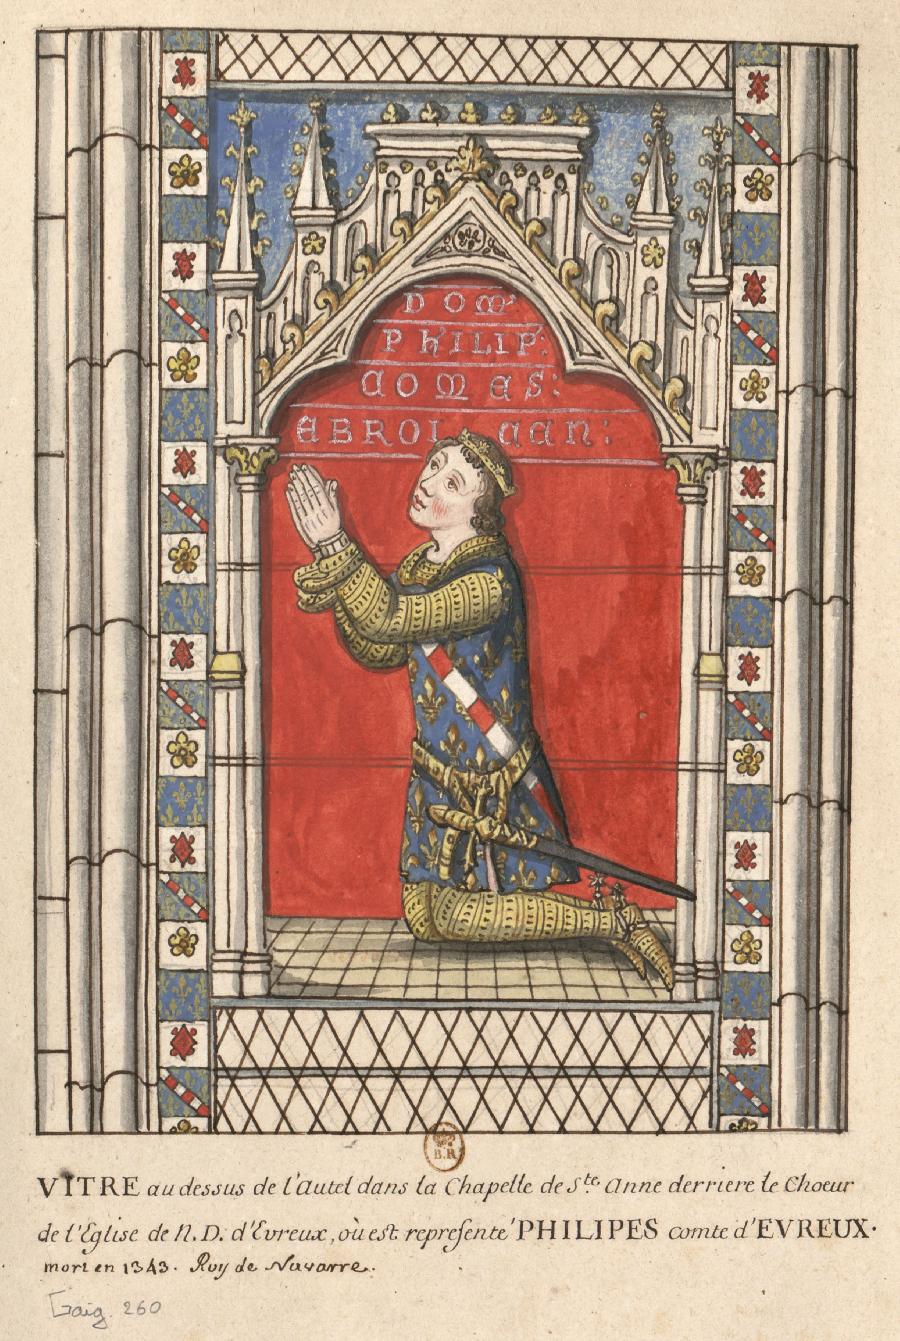 DOM'
PHILIP:
COMES:
EBROI CEN:
B.R
VITRE au dessus de l'Autel dans la Chapelle de Ste. Anne derriere le Choeur
de l'Eglise de N.D. d'Evreux, où est represente' PHILIPES comte d'EVREUX.
mort en 1343. Roy de Navarre.
Gaig. 260